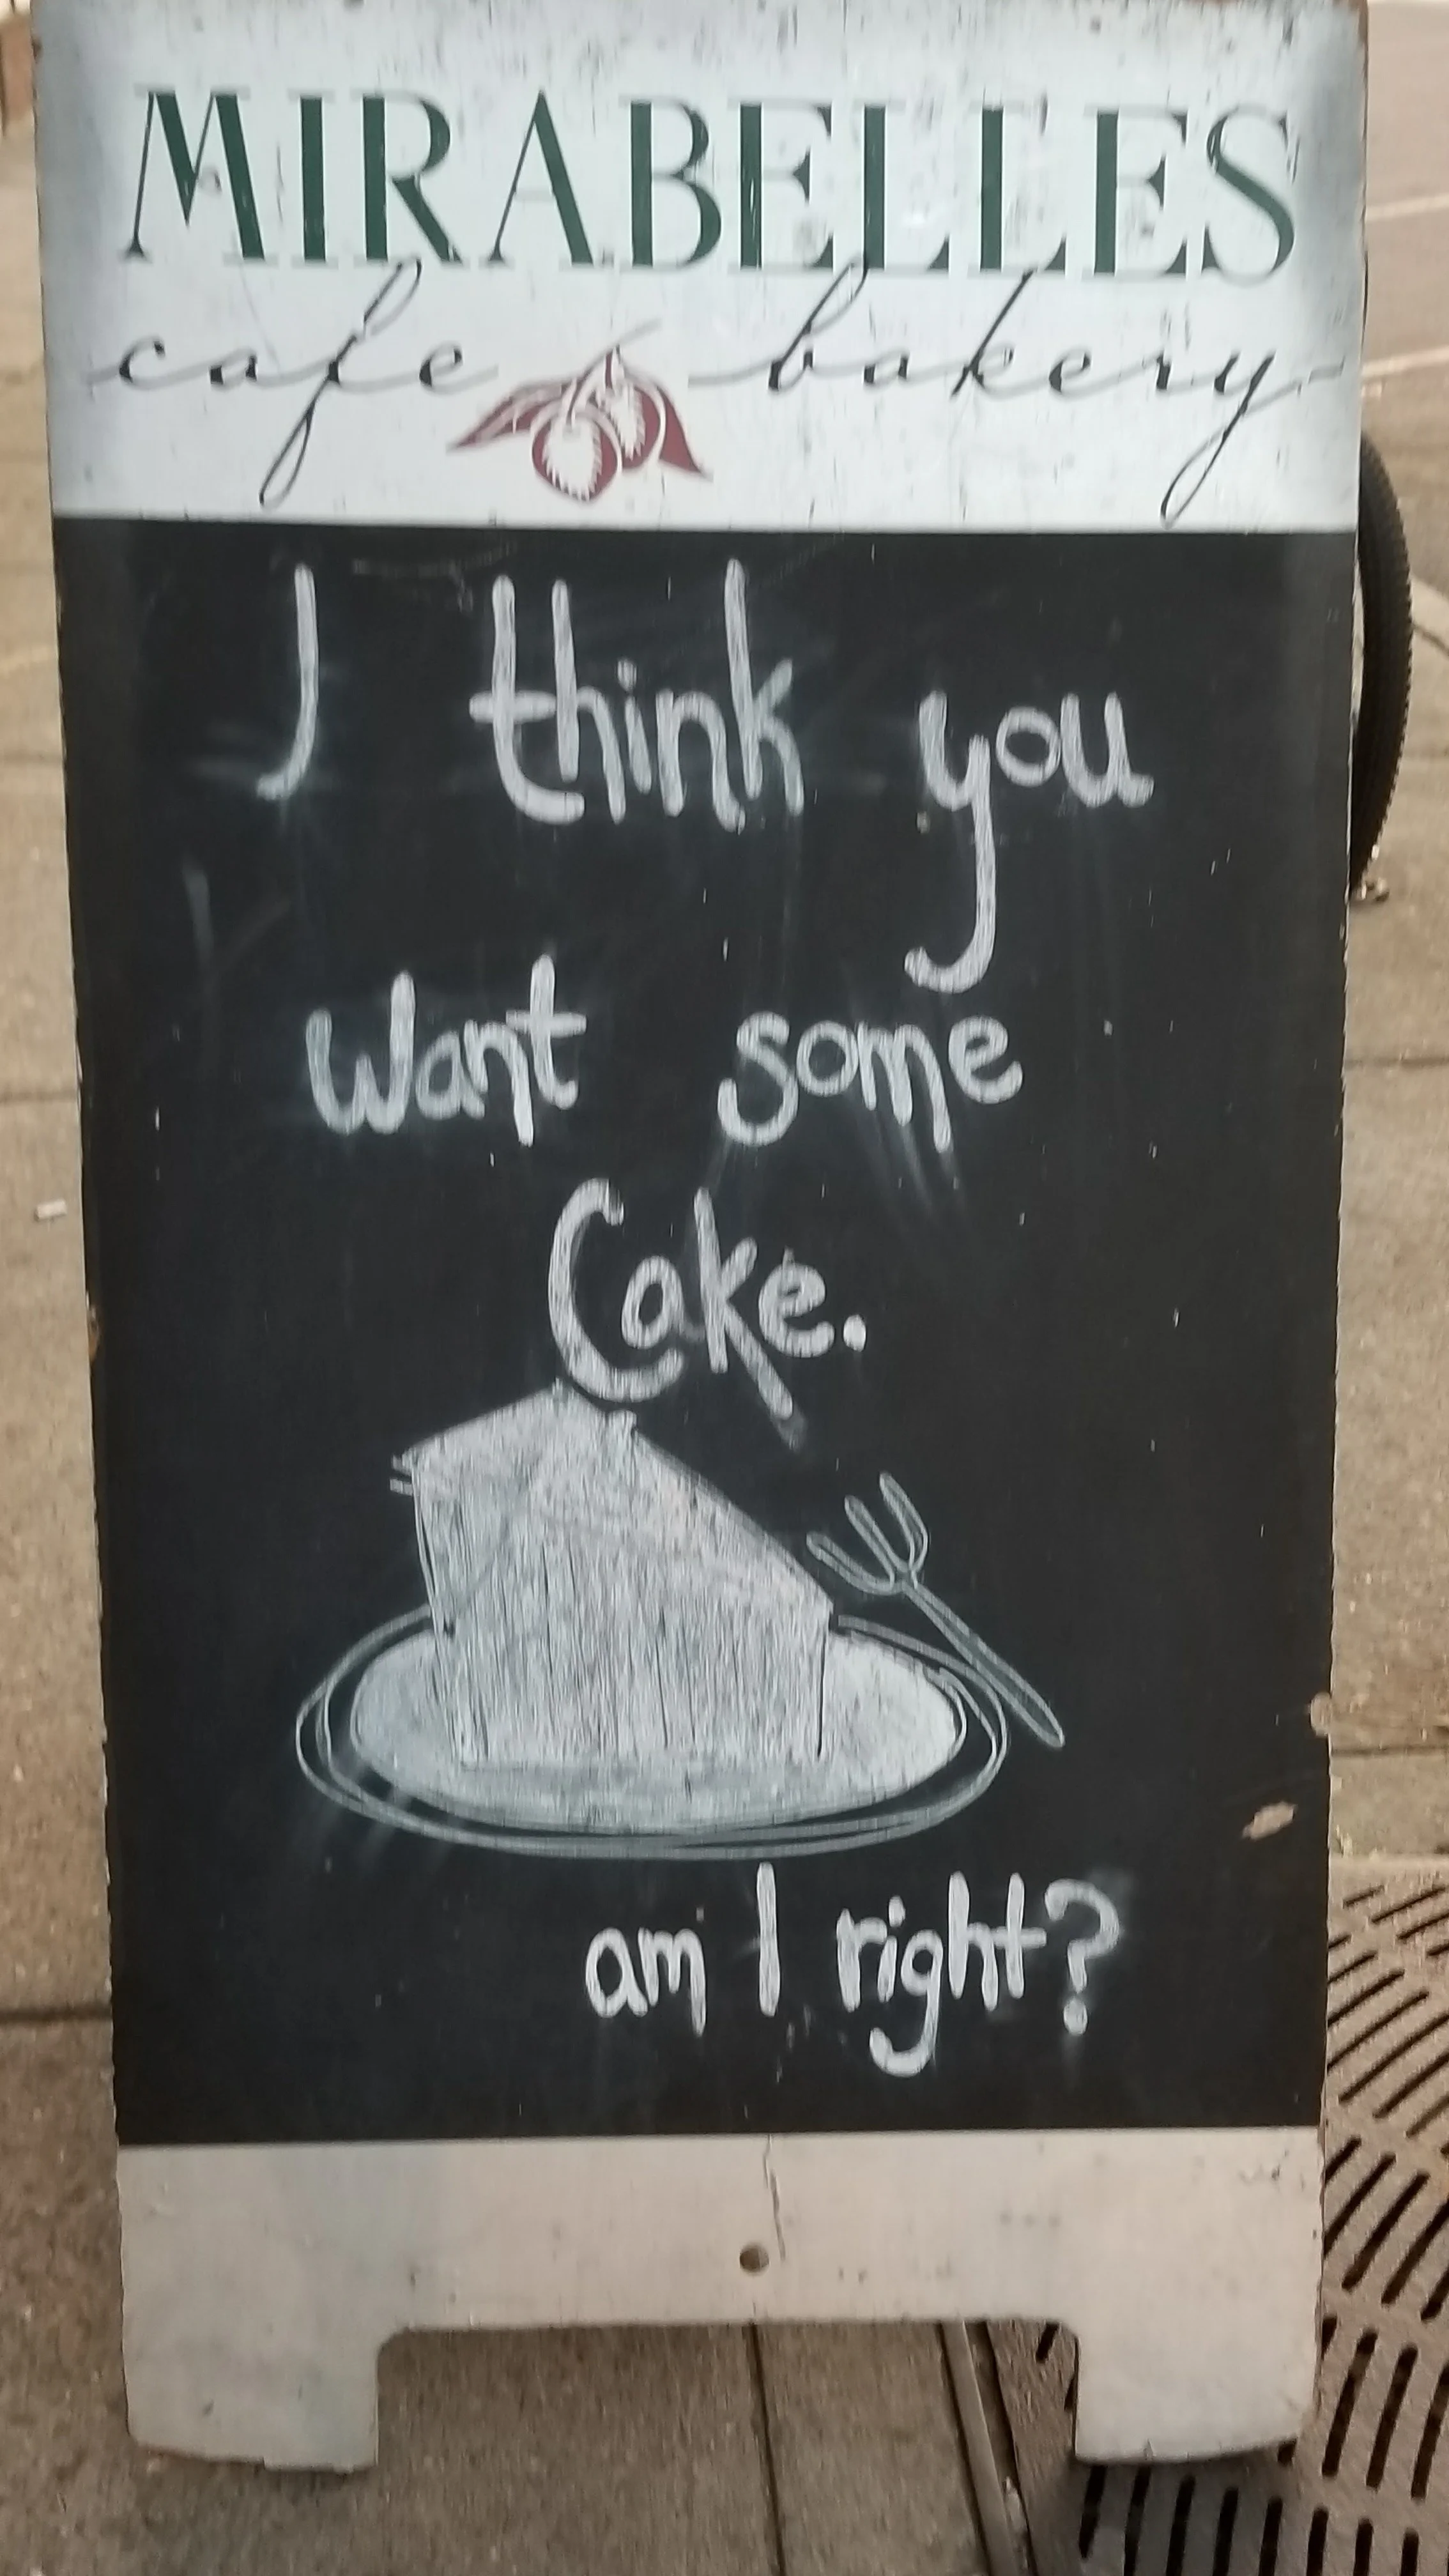 MIRABELLES
cafe bakery
I think you
want some
Cake.
am I right?